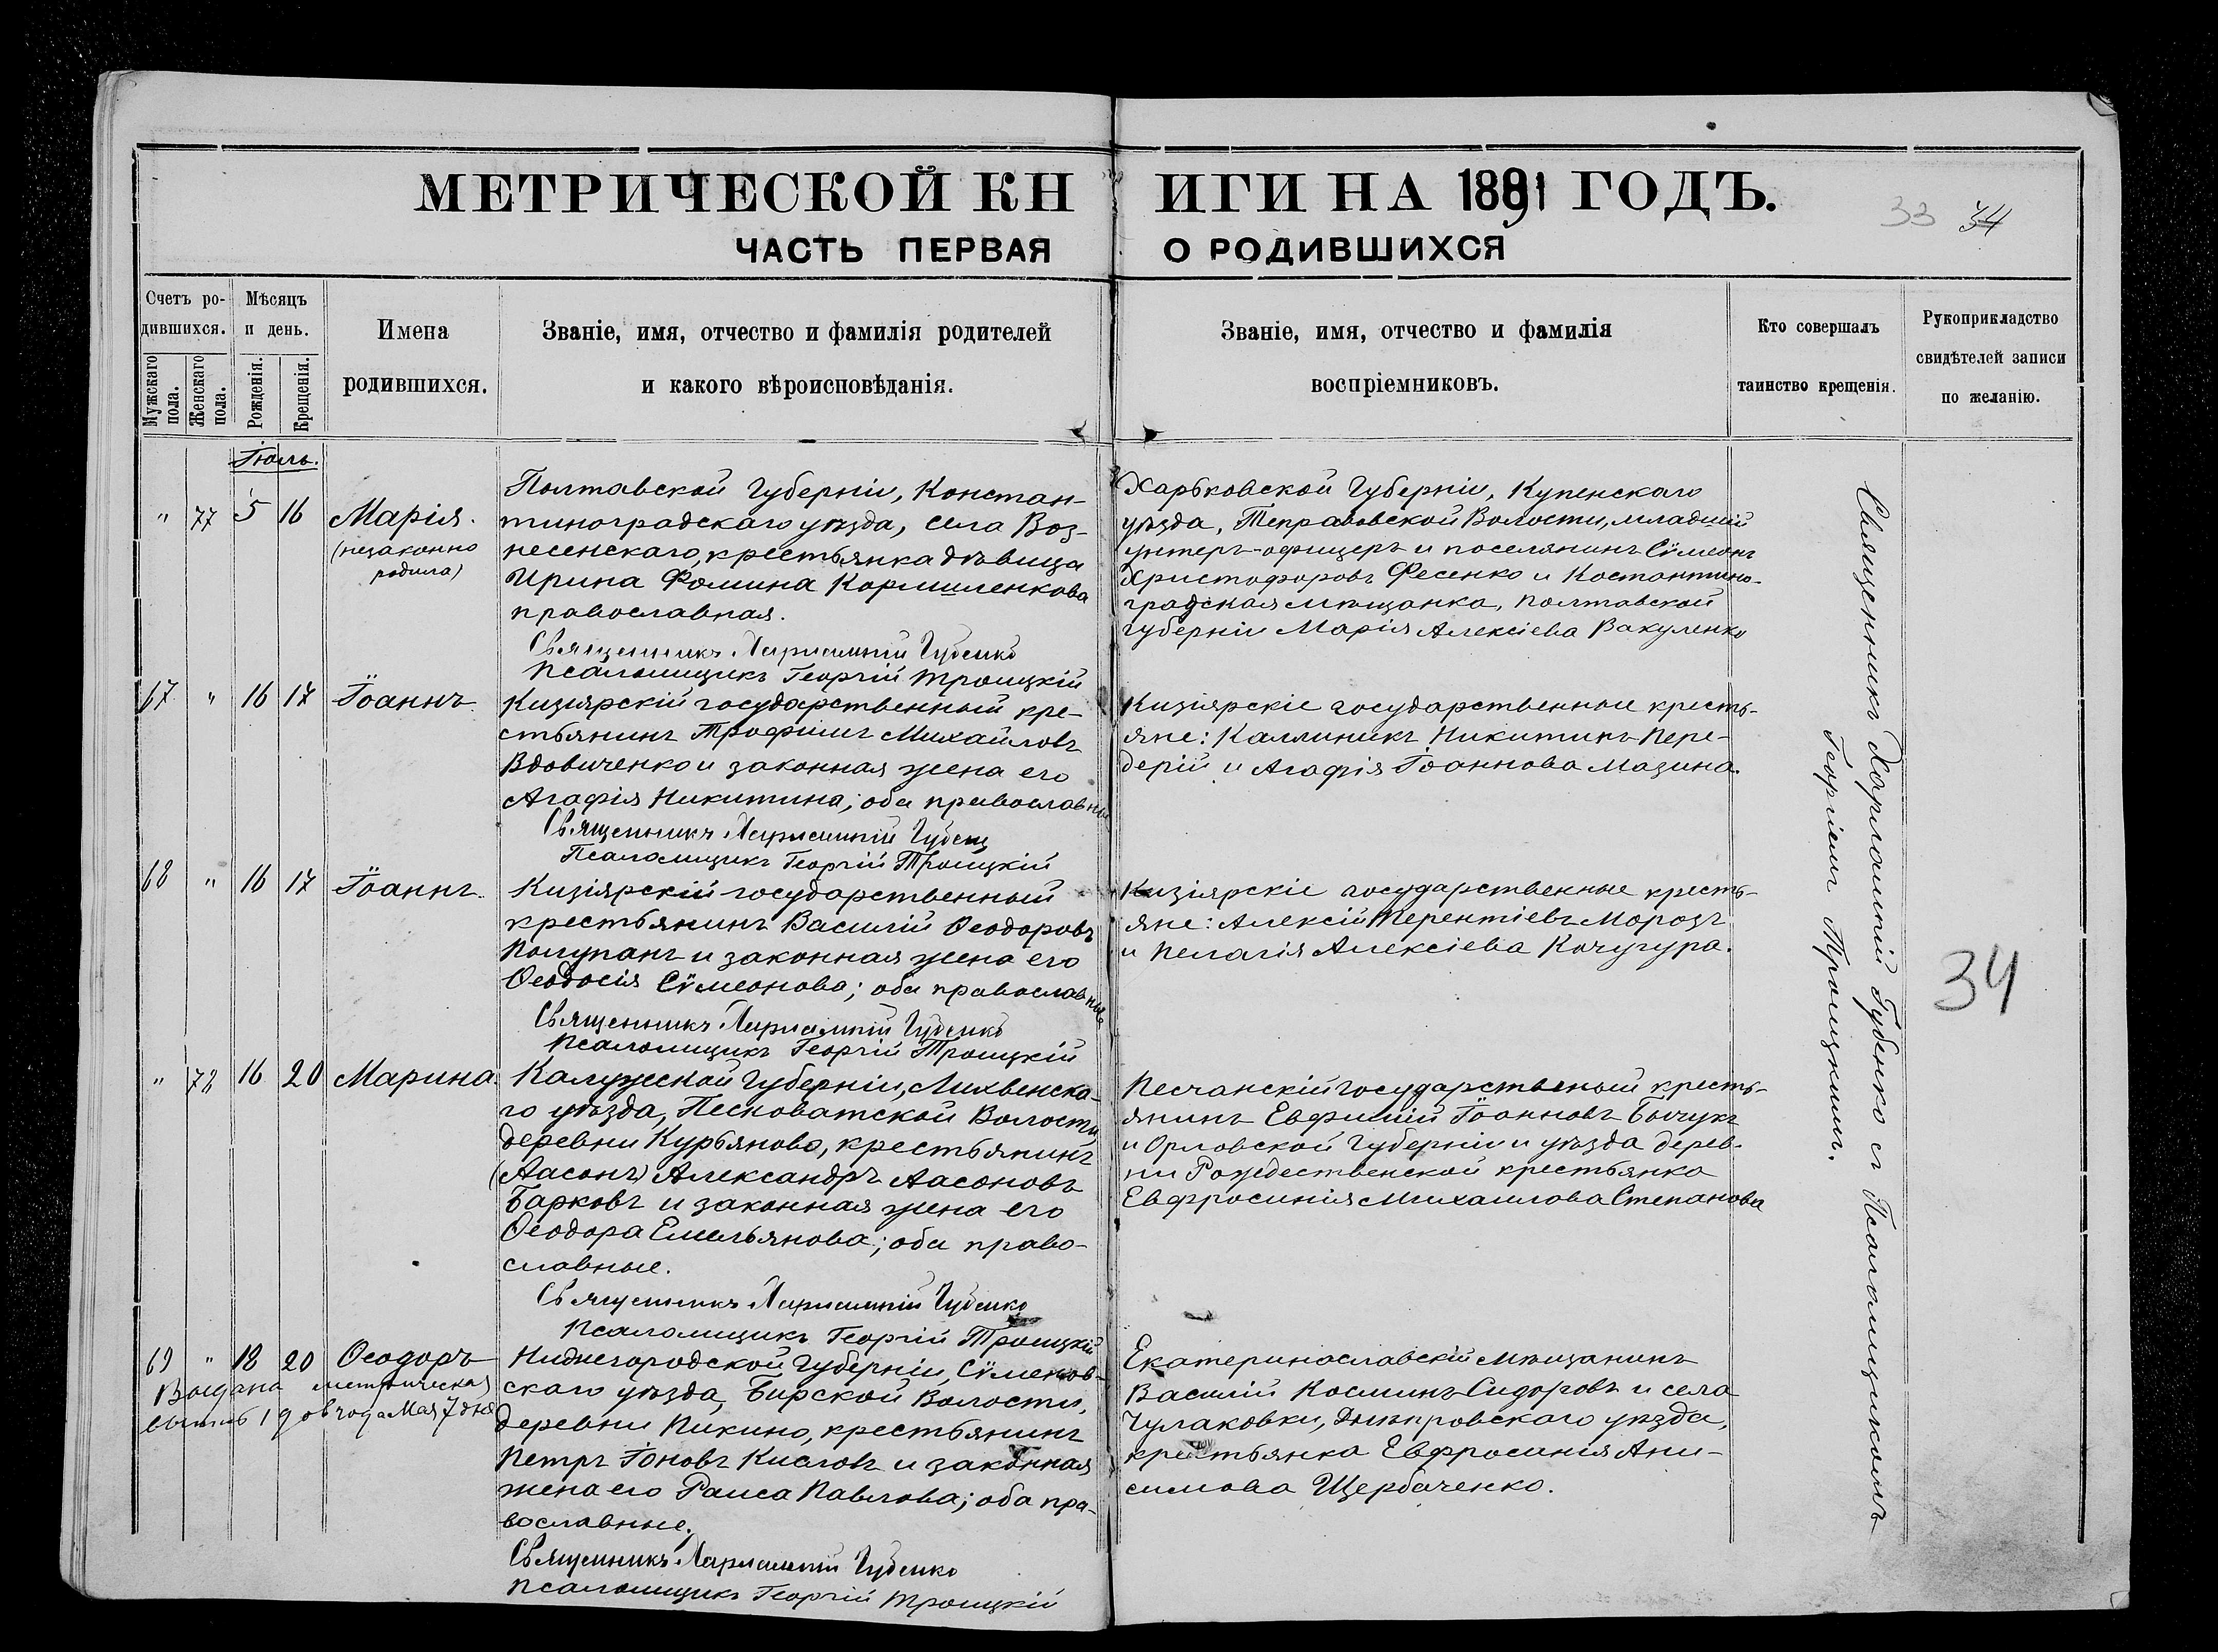 МЕТРИЧЕСКОЙ КНИГИ НА 1891 ГОДЪ.
33 34
ЧАСТЬ ПЕРВАЯ О РОДИВШИХСЯ
Счетъ ро-
дившихся.
Мужскаго пола.
Женскаго пола.
Мѣсяцъ
и день.
Рожденія.
Крещенія.
Имена
родившихся.
Званіе, имя, отчество и фамилія родителей
и какого вѣроисповѣданія.
Званіе, имя, отчество и фамилія
воспріемниковъ.
Кто совершалъ
таинство крещенія.
Рукоприкладство
свидѣтелей записи
по желанію.
Іюль.
" 77 5 16 Марія.
(незаконно
родила)
Полтавской Губерніи, Констан-
тиноградскаго уѣзда, села Воз-
несенскаго, крестьянка дѣвица
Ирина Фомина Кормиленкова
православная.
Священникъ Харлампій Губенко
Псаломщикъ Георгій Троицкій
Харьковской Губерніи, Купенскаго
уѣзда, Волости, младшій
унтеръ-офицеръ и поселянинъ Сѵмеонъ
Христофоровъ Фесенко и Костантино-
градская мѣщанка, Полтавской
губерніи Марія Алексіева Вакуленко
67 " 16 17 Іоаннъ
Кизіярскій государственный кре-
стьянинъ Трофимъ Михайловъ
Вдовиченко и законная жена его
Агафія Никитина; оба православные
Священникъ Харлампій Губенко
Псаломщикъ Георгій Троицкій
Кизіярскіе государственные кресть-
яне: Каллиникъ Никитинъ Пере-
дерій и Агафія Іоаннова Мазина.
68 " 16 17 Іоаннъ.
Кизіярскій государственный
крестьянинъ Василій Ѳеодоровъ
Полупанъ и законная жена его
Ѳеодосія Сѵмеонова; оба православные
Священникъ Харлампій Губенко
Псаломщикъ Георгій Троицкій
Кизіярскіе государственные кресть-
яне: Алексій Терентіевъ Морозъ
и Пелагія Алексіева Кочугура.
" 78 16 20 Марина.
Калужской Губерніи, Лихвенска-
го уѣзда, Песковатской Волости
деревни Курьяново, крестьянинъ
(Аасонъ) Александръ Аасоновъ
Барковъ и законная жена его
Ѳеодора Емельянова; оба право-
славные.
Священникъ Харлампій Губенко
Псаломщикъ Георгій Троицкій
Песчанскій государственый кресть-
янинъ Евфимій Іоанновъ Бычукъ
и Орловской Губерніи и уѣзда дерев-
ни Рождественской крестьянка
Евфросинія Михаилова Степанова
69 " 18 20 Ѳеодоръ
Выдана метрическая
1906 года Мая 7 дня
Нижегородской Губерніи, Сѵменов-
скаго уѣзда, Бирской Волости,
деревни Пикино, крестьянинъ
Петръ Іоновъ Кисловъ и законная
жена его Раиса Павлова; оба пра-
вославные.
Священникъ Харлампій Губенко
Псаломщикъ Георгій Троицкій
Екатеринославскій мѣщанинъ
Василій Косминъ Сидоровъ и села
Чулаковки, Днѣпровскаго уѣзда,
крестьянка Евфросинія Ани-
симова Щербаченко.
Священникъ Харлампій Губенко съ Псаломщикомъ
Георгіемъ Троицкимъ.
34